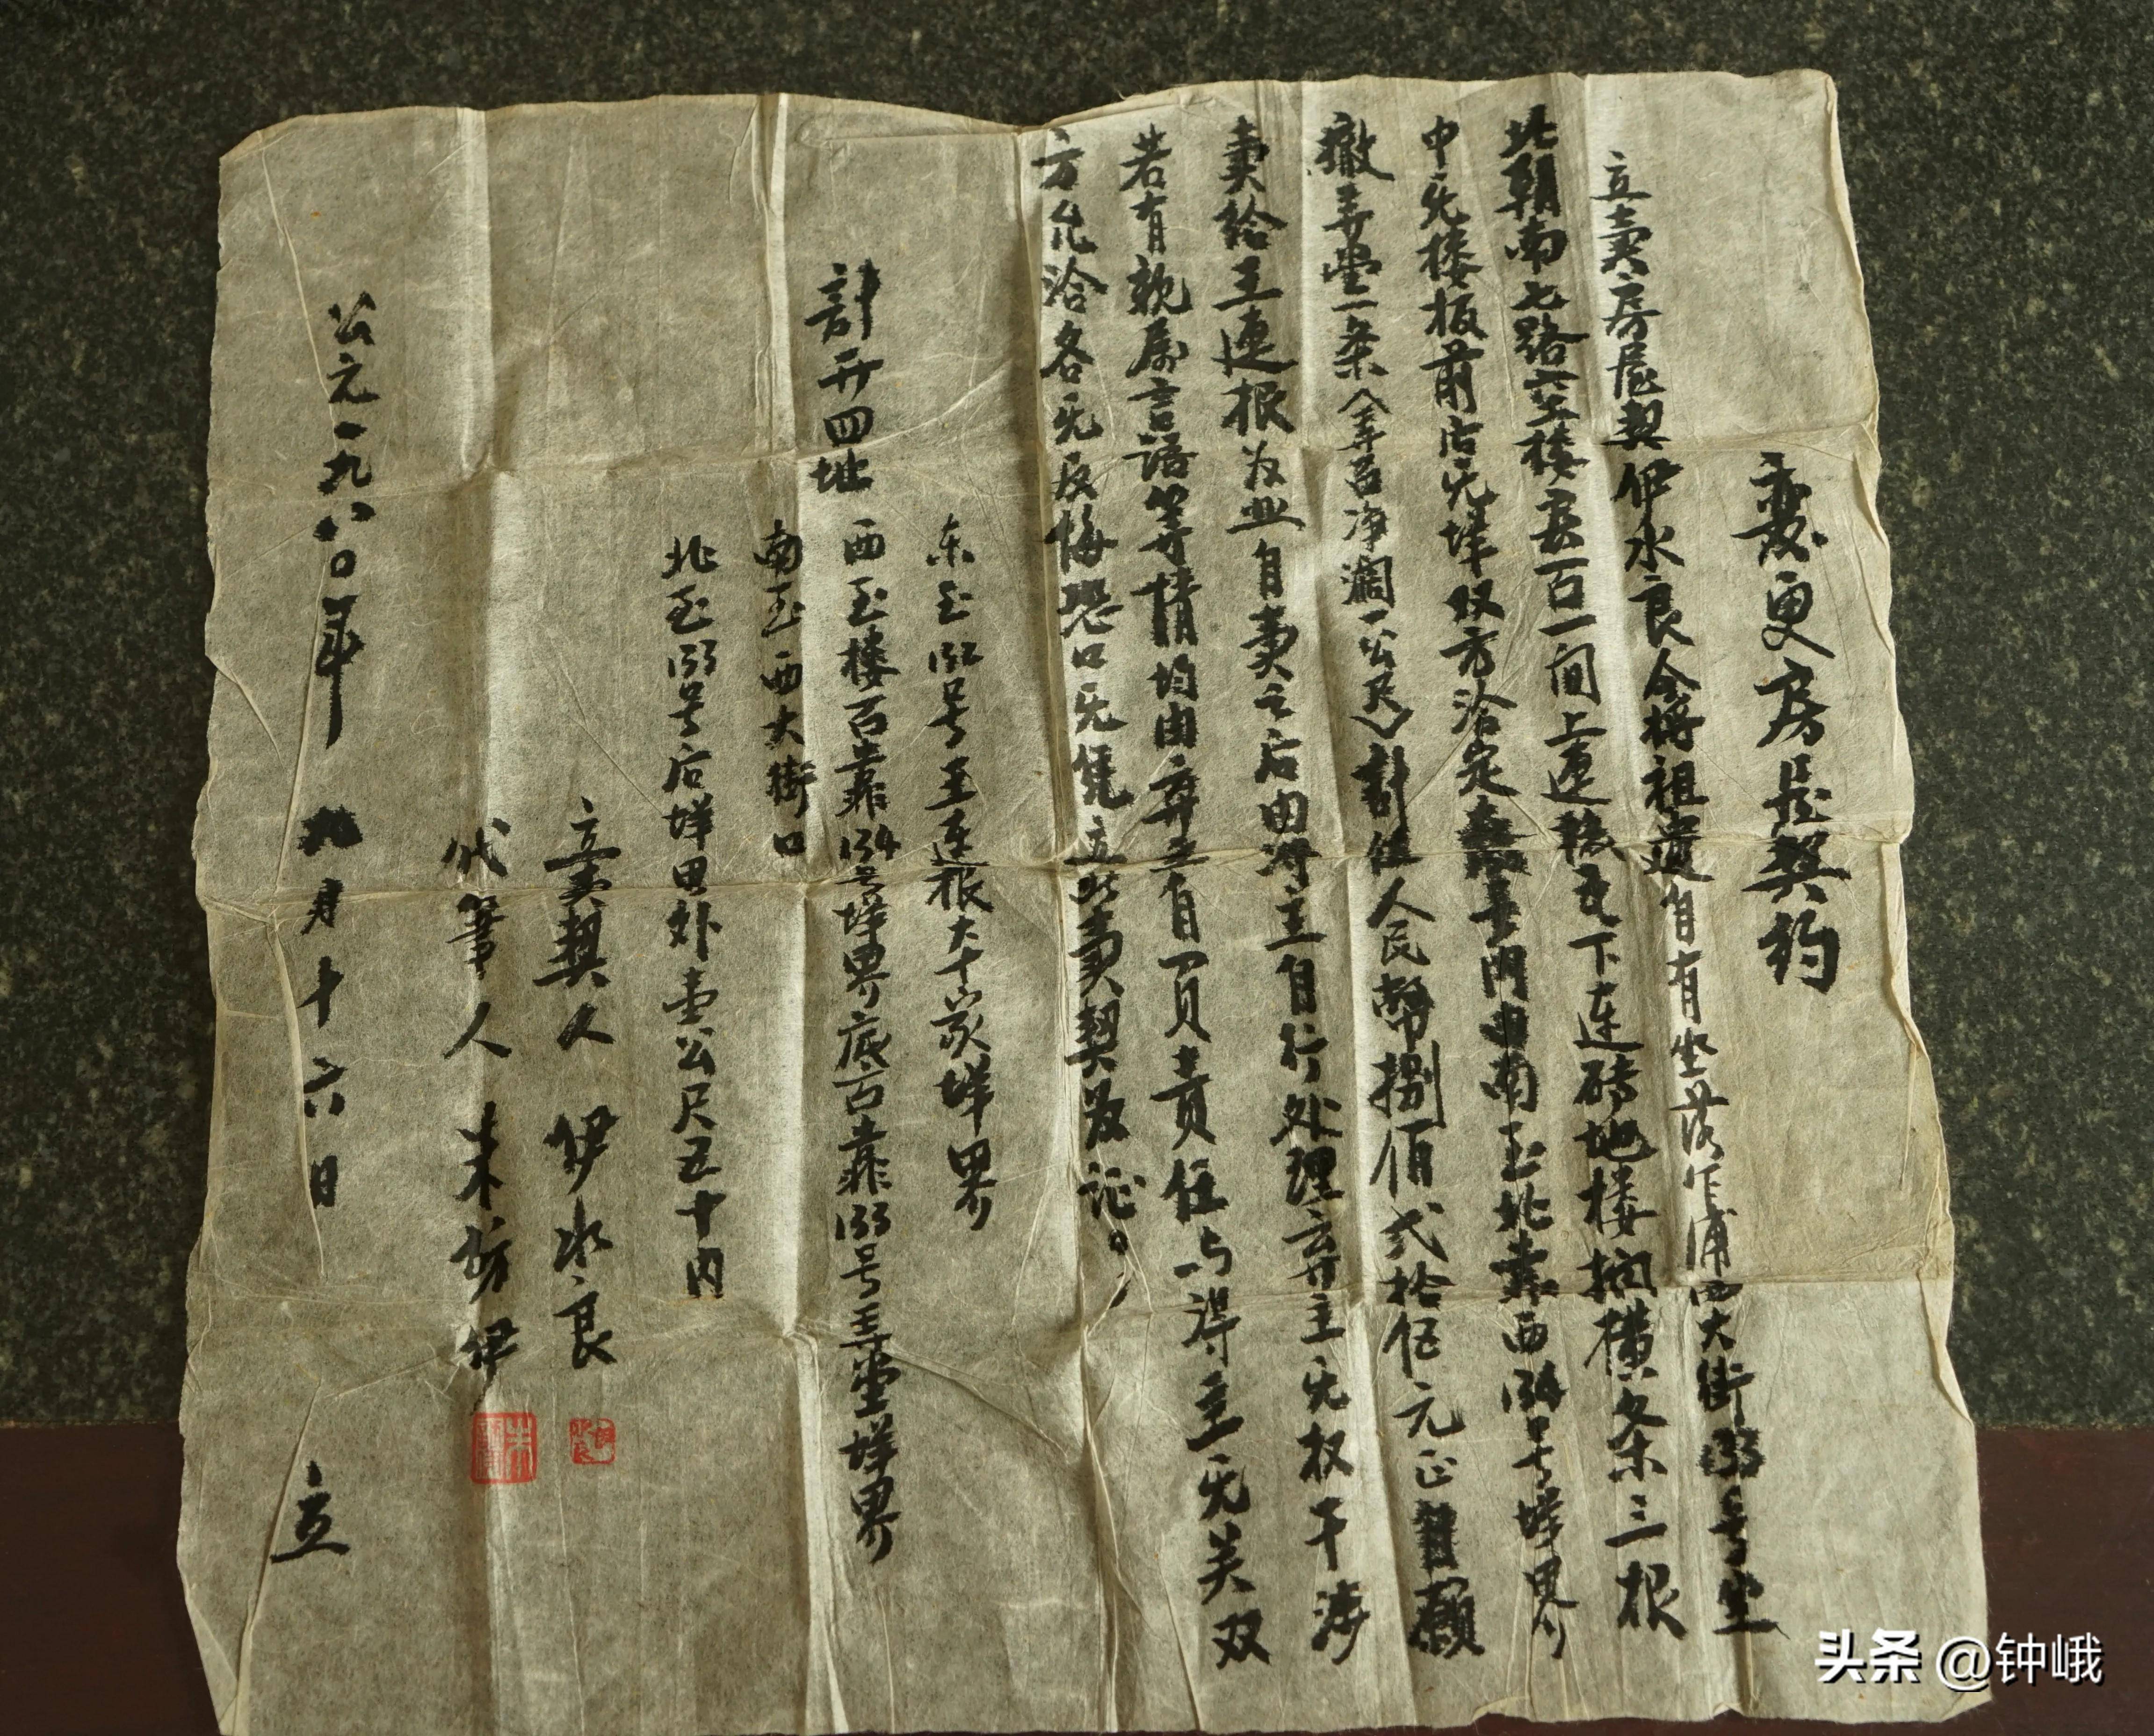 变更房屋契约
立卖房屋契伊水良今将祖遗自有坐落乍浦西大街133号坐
北朝南七路六尺楼房一间上连椽瓦下连砖地楼搁横条三根
中无楼板前后无墙双方洽定靠东门由南至北靠西134号墙界
撤弄堂一条（弄召净阔一公尺）计值人民币捌佰弍拾伍元正自愿
卖给王连根为业自卖之后由得主自行处理弃主无权干涉
若有亲属言语等情均由弃主自一负责任与得主无关双
方允洽各无反悔恐口无凭立此卖契为证。
东至132号王连根大十六家墙界
计开四址 西至楼面靠134号墙界底面靠133号弄堂墙界
南至西大街口
北至133号后墙里外壹公尺五十内
立卖契人 伊水良
代笔人 朱 伊
公元一九八〇年九月十六日 立
头条 @钟峨